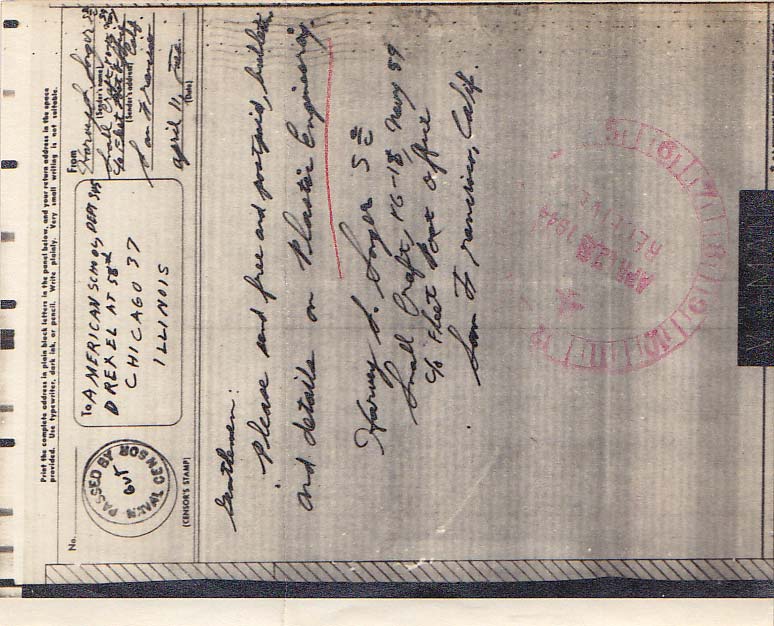 Print the complete address in plain block letters in the panel below, and your return address in the space
provided. Use typewriter, dark ink, or pencil. Write plainly. Very small writing is not suitable.
No.
PASSED BY
NAVAL CENSOR
(CENSOR'S STAMP)
To AMERICAN SCHOOL, DEPT
DREXEL AT 58th
CHICAGO 37
ILLINOIS
From
(Sender's name)
Small Craft
c/o Fleet Post Office
(Sender's address)
San Francisco Calif
April 11,
(Date)
Gentlemen:
Please send free and postpaid, bulletin
and details on Plastic Engineering.
Harvey L. S 2/c
Small Craft, Navy 59
c/o Fleet Post Office
San Francisco, Calif.
5 6 7 8 9 10 11 12
APR 28 1944
RECEIVE